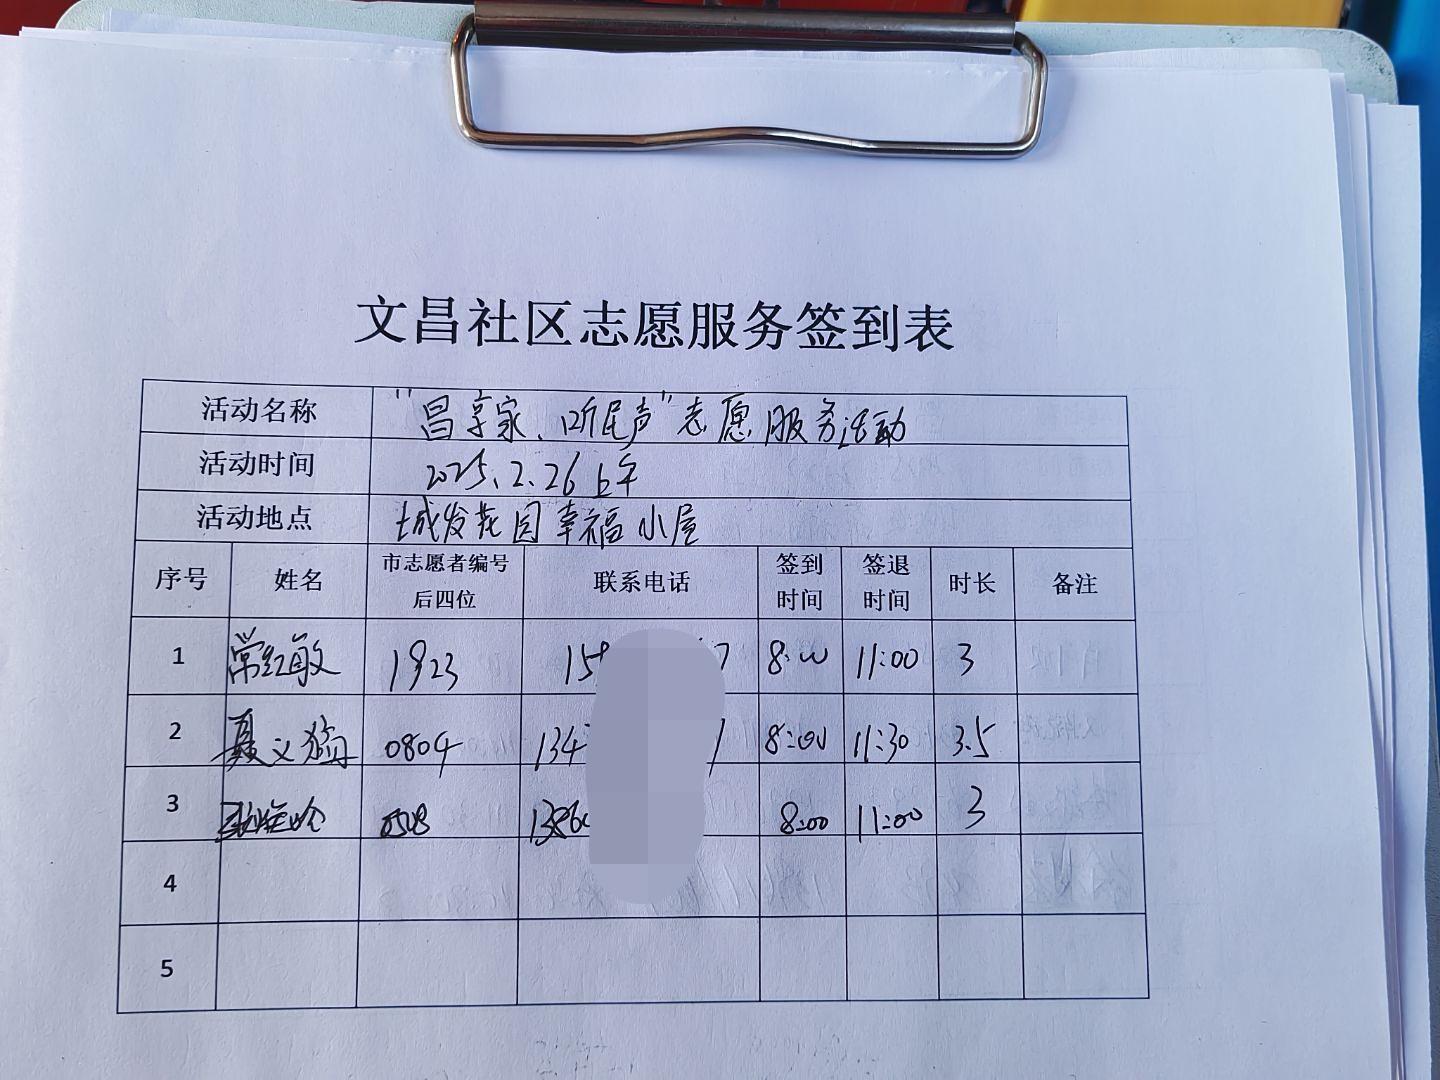 文昌社区志愿服务签到表
活动名称 "昌享家、听民声"志愿服务活动
活动时间 2025.2.26上午
活动地点 城发花园幸福小屋
序号 姓名 市志愿者编号后四位 联系电话 签到时间 签退时间 时长 备注
1 常红敏 1923 15 7 8:00 11:00 3
2 聂义 0804 134 1 8:00 11:30 3.5
3 0508 1386 8:00 11:00 3
4
5